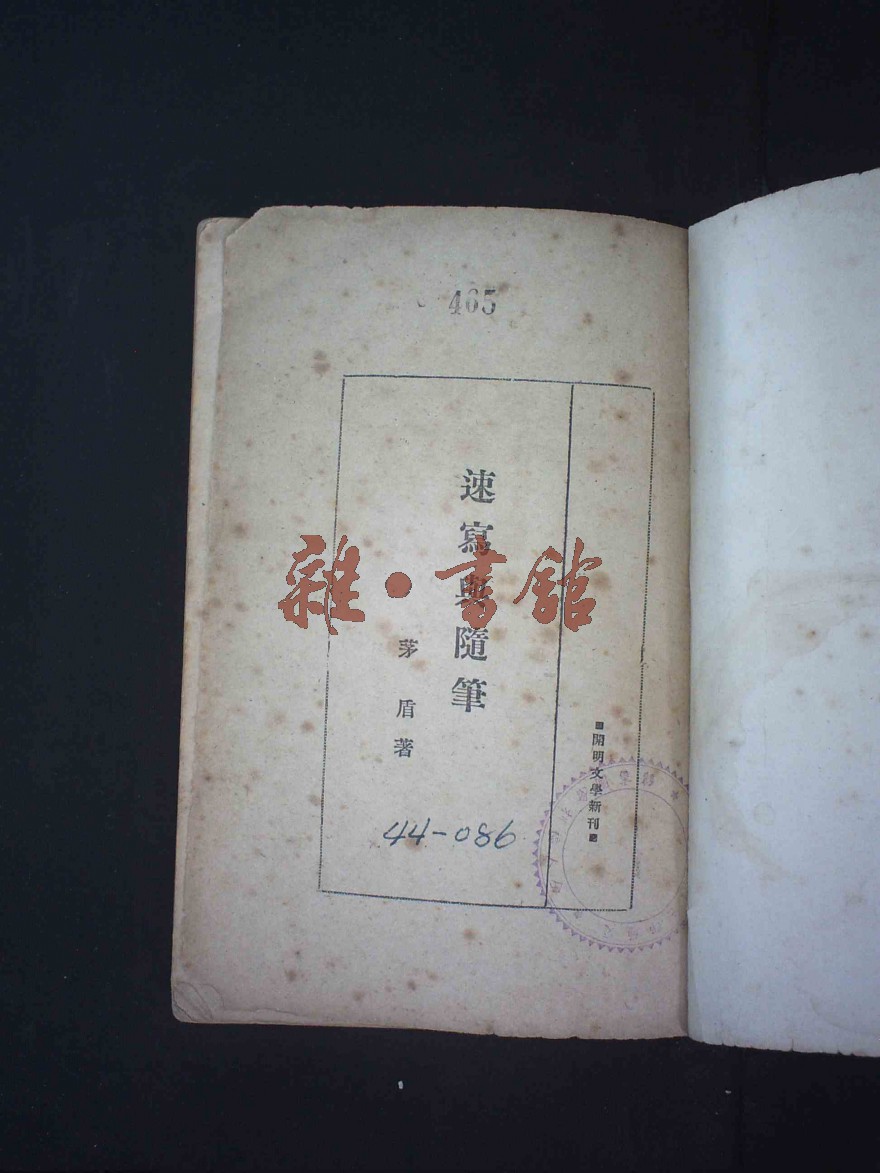 465
開明文學新刊
速寫與隨筆
茅盾著
44-086
雜·書館